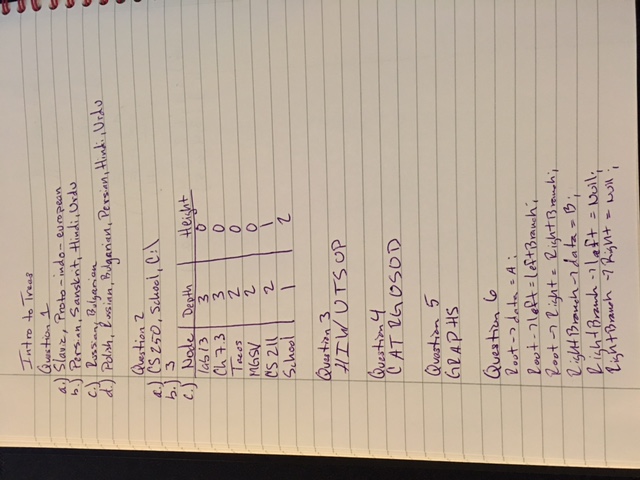 Intro to Trees
Question 1
a.) Slavic, Proto-indo-european
b.) Persian, Sanskrit, Hindi, Urdu
c.) Russian, Bulgarian
d.) Polish, Russian, Bulgarian, Persian, Hindi, Urdu
Question 2
a.) CS250, School, C:\
b.) 3
c.) Node Depth Height
lab13 3 0
Ch7.3 3 0
Trees 2 0
MGSV 2 0
CS211 2 1
School 1 2
Question 3
HIWUTSUP
Question 4
CATRGOSOD
Question 5
GRAPHS
Question 6
Root->data = A;
Root->left = leftBranch;
Root->Right = RightBranch;
RightBranch->data = B;
RightBranch->left = Null;
RightBranch->Right = Null;